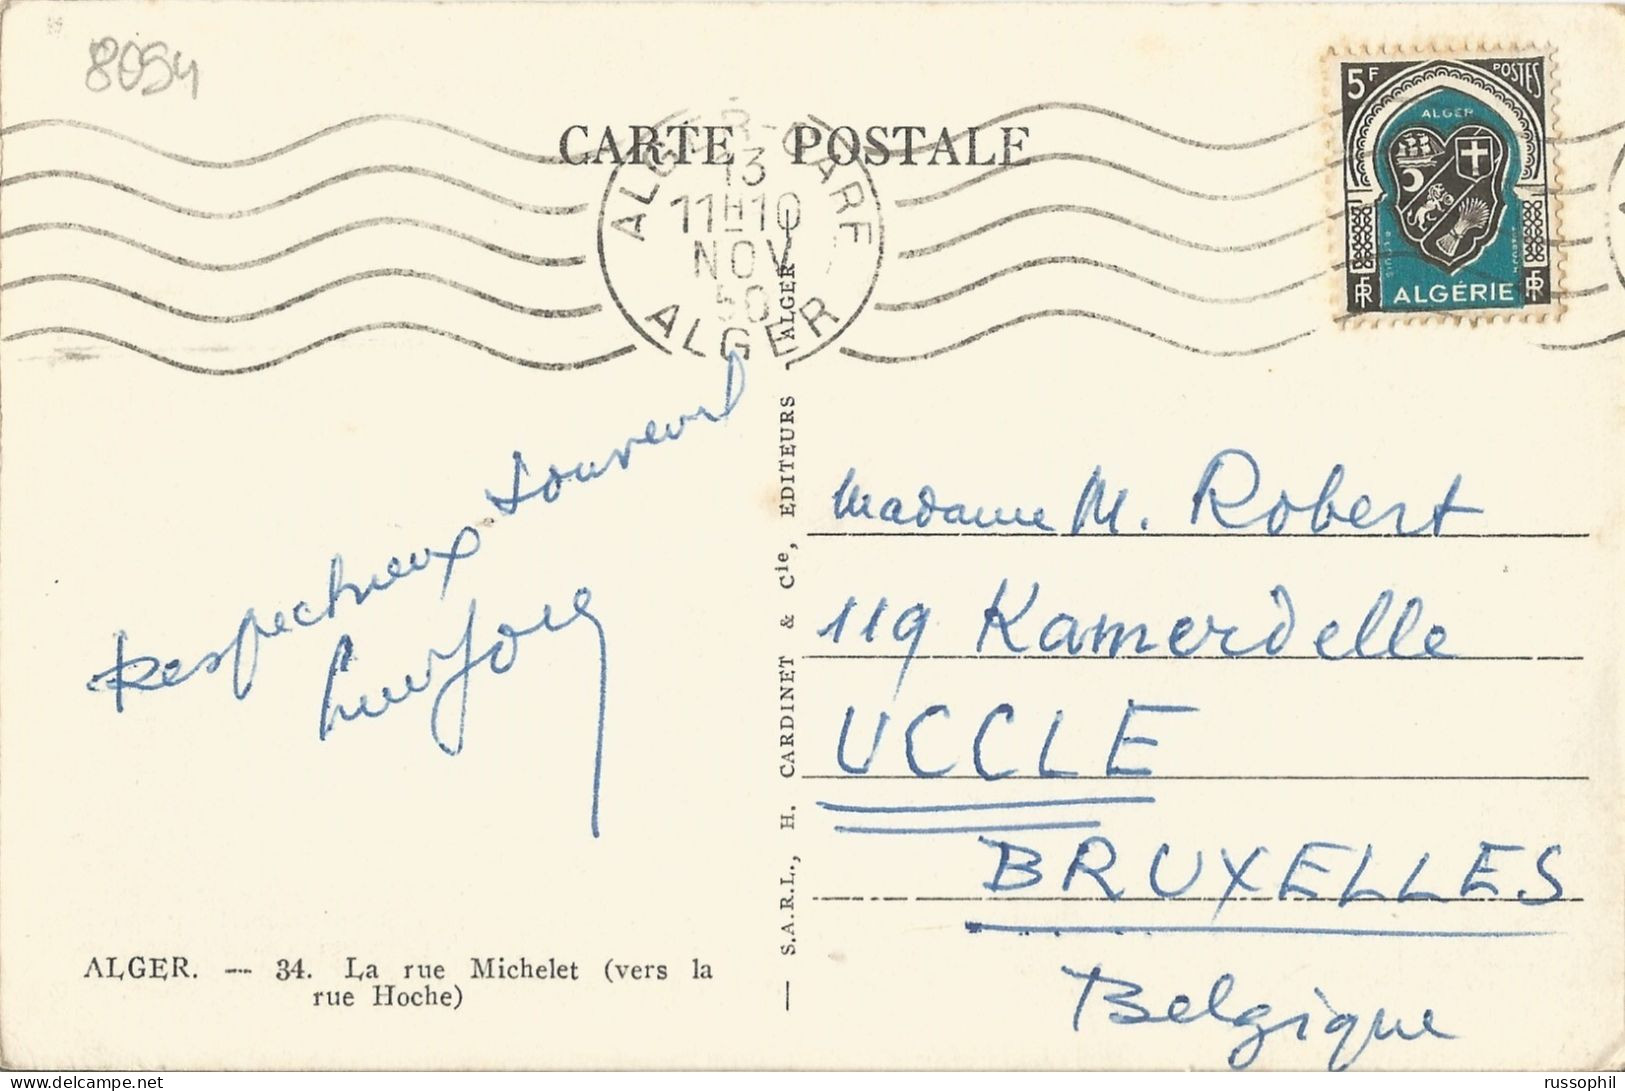 8094
CARTE POSTALE
ALGER-CARF
13
11H10
NOV
50
ALGER
5F POSTES
ALGER
RF RF
ALGÉRIE
Respectueux souvenir
Madame M. Robert
119 Kamerdelle
UCCLE
BRUXELLES
Belgique
— S.A.R.L., H. CARDINET & Cie, EDITEURS - ALGER
ALGER. — 34. La rue Michelet (vers la
rue Hoche)
russophil